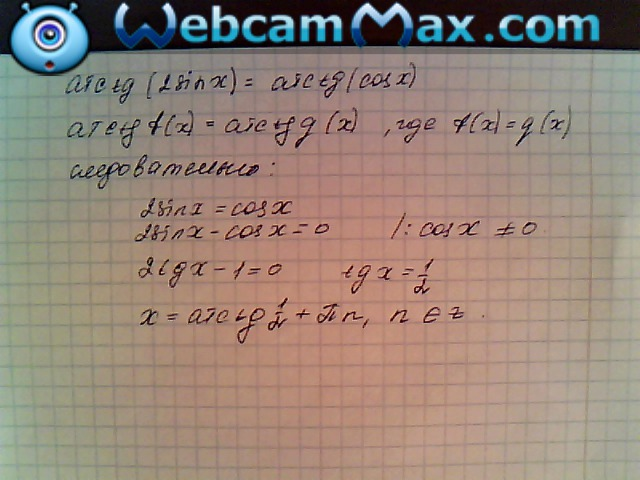 WebcamMax.com
arctg (2sin x) = arctg (cos x)
arctg f(x) = arctg g(x) , где f(x) = g(x)
следовательно:
2sin x = cos x
2sin x - cos x = 0 /: cos x ≠ 0
2tg x - 1 = 0 tg x = 1/2
x = arctg 1/2 + πn, n ∈ z.